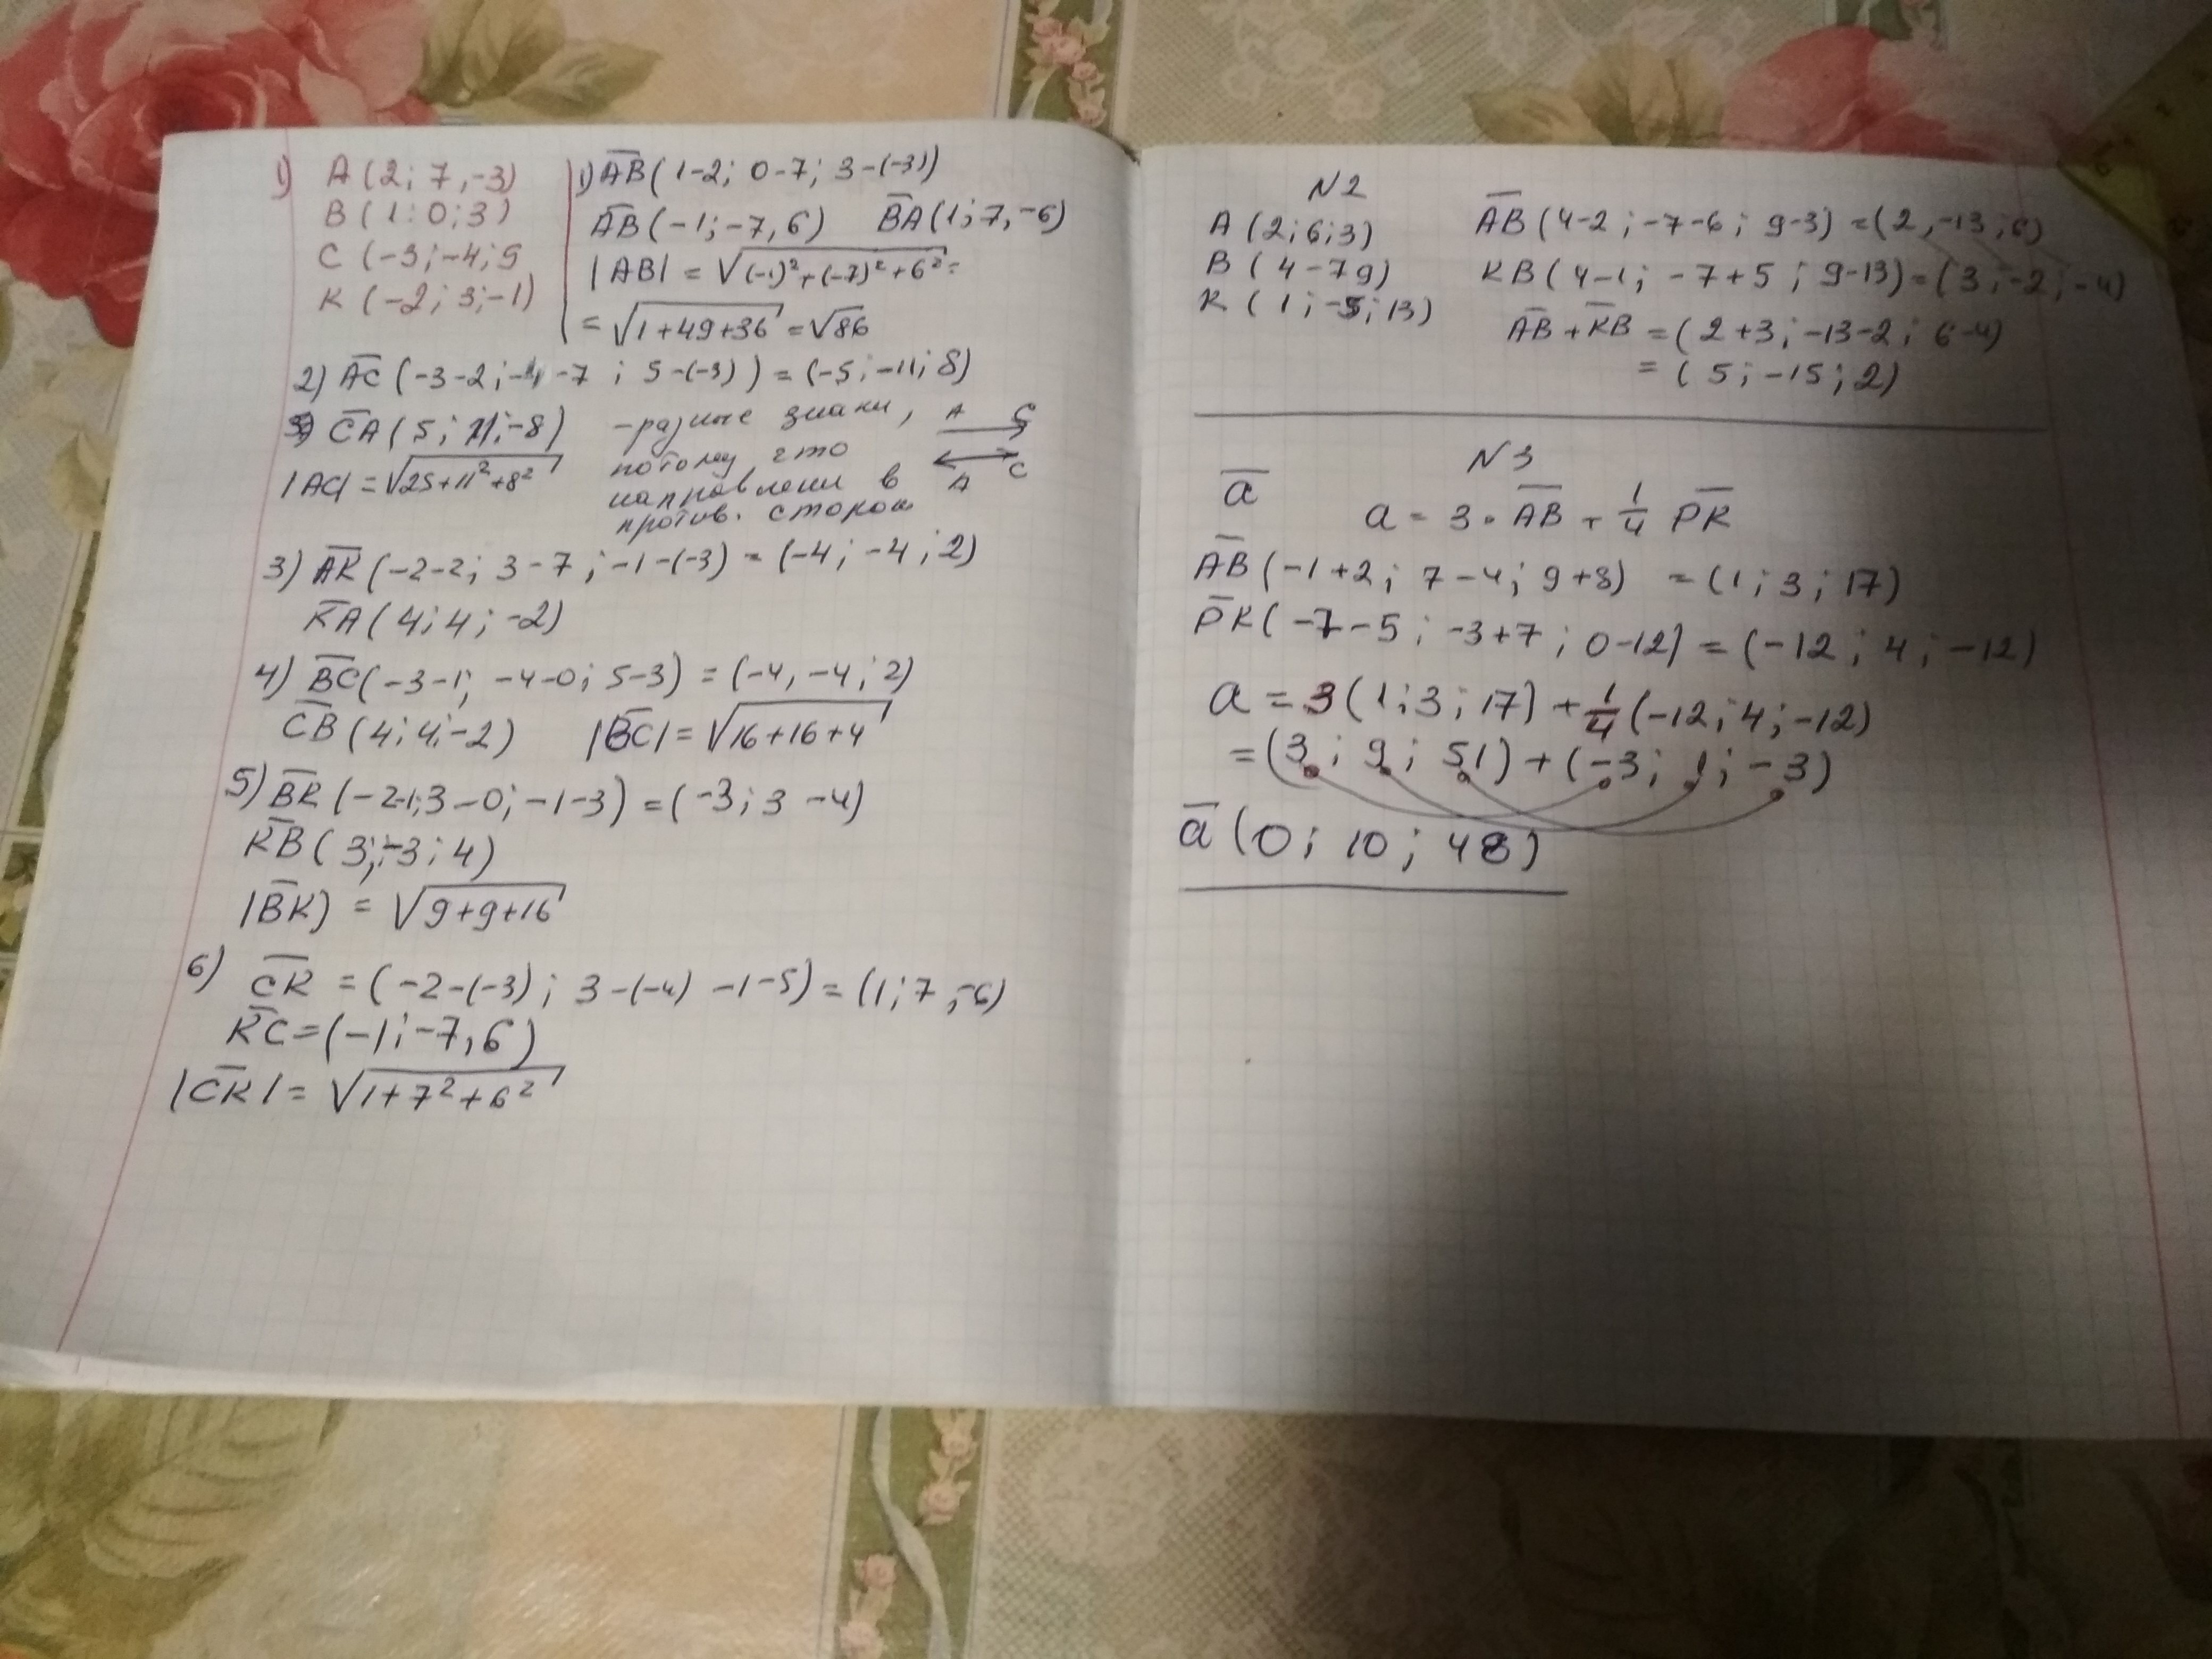 1) A (2; 7, -3)
B (1: 0; 3)
C (-3; -4; 5
K (-2; 3; -1)
1) AB (1-2; 0-7; 3-(-3))
AB (-1; -7, 6) BA (1; 7, -6)
|AB| = √(-1)² + (-7)² + 6² =
= √1+49+36 = √86
2) AC (-3-2; -4-7 ; 5-(-3)) = (-5; -11; 8)
CA (5; 11; -8)
|AC| = √25+11²+8²
- разные знаки,
потому что
направлены в
против. сторон
A C
A C
3) AK (-2-2; 3-7; -1-(-3) = (-4; -4; 2)
KA (4; 4; -2)
4) BC (-3-1; -4-0; 5-3) = (-4, -4; 2)
CB (4; 4; -2) |BC| = √16+16+4
5) BK (-2-1; 3-0; -1-3) = (-3; 3 -4)
KB (3; -3; 4)
|BK) = √9+9+16
6) CK = (-2-(-3); 3-(-4) -1-5) = (1; 7, -6)
KC = (-1; -7, 6)
|CK| = √1+7²+6²
N2
A (2; 6; 3)
B (4 -7 9)
K (1; -5; 13)
AB (4-2; -7-6; 9-3) = (2, -13; 6)
KB (4-1; -7+5; 9-13) = (3; -2; -4)
AB + KB = (2+3; -13-2; 6-4)
= (5; -15; 2)
N3
a a = 3 · AB + 1/4 PK
AB (-1+2; 7-4; 9+8) = (1; 3; 17)
PK (-7-5; -3+7; 0-12) = (-12; 4; -12)
a = 3 (1; 3; 17) + 1/4 (-12; 4; -12)
= (3; 9; 51) + (-3; 1; -3)
a (0; 10; 48)